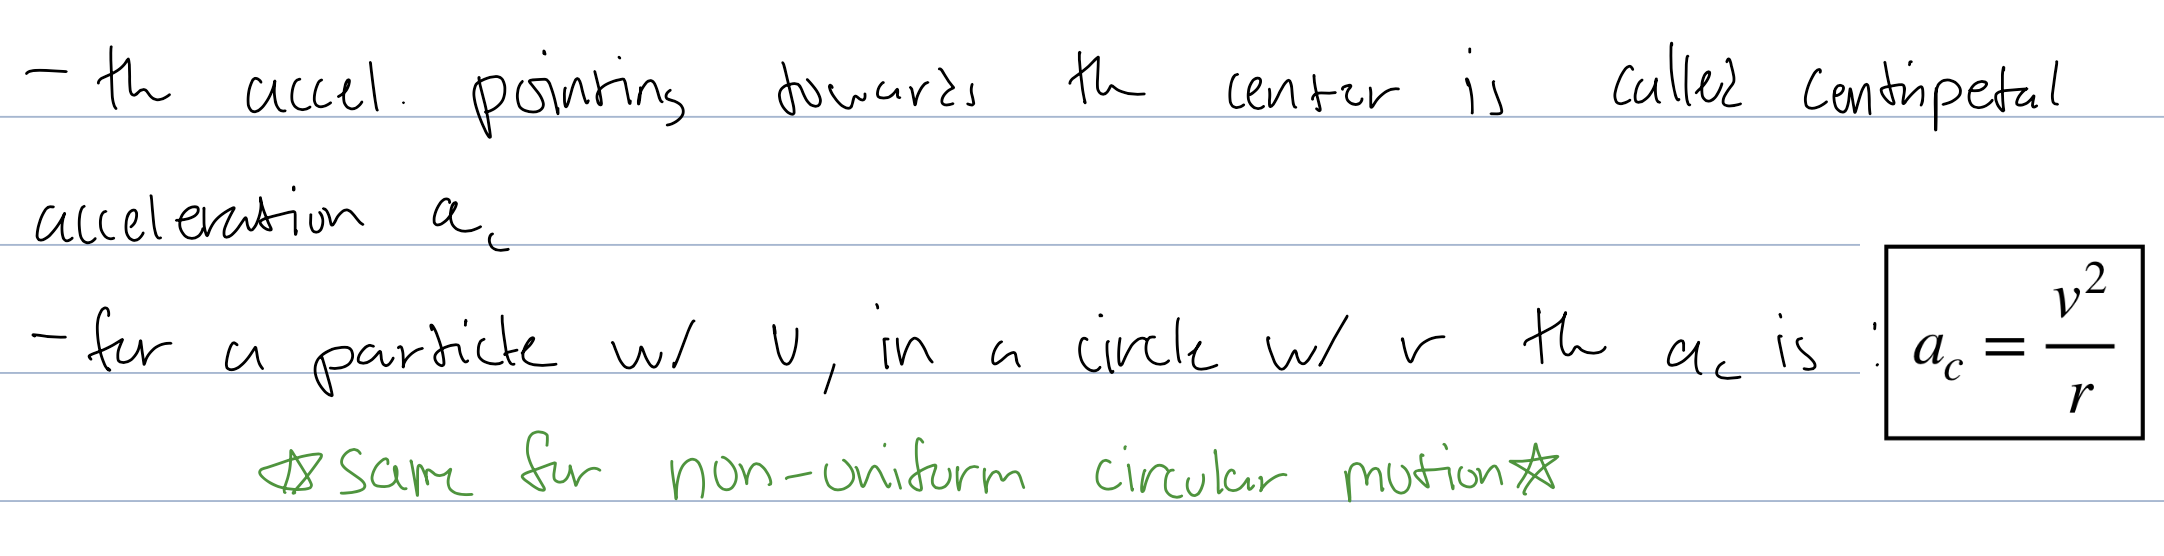 - th accel. pointing towards th center is called centripetal
acceleration a_c
- for a particle w/ v, in a circle w/ r th a_c is : a_c = v²/r
☆ same for non-uniform circular motion ☆